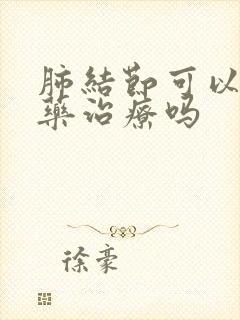 肺結節可以
藥治療吗
徐豪